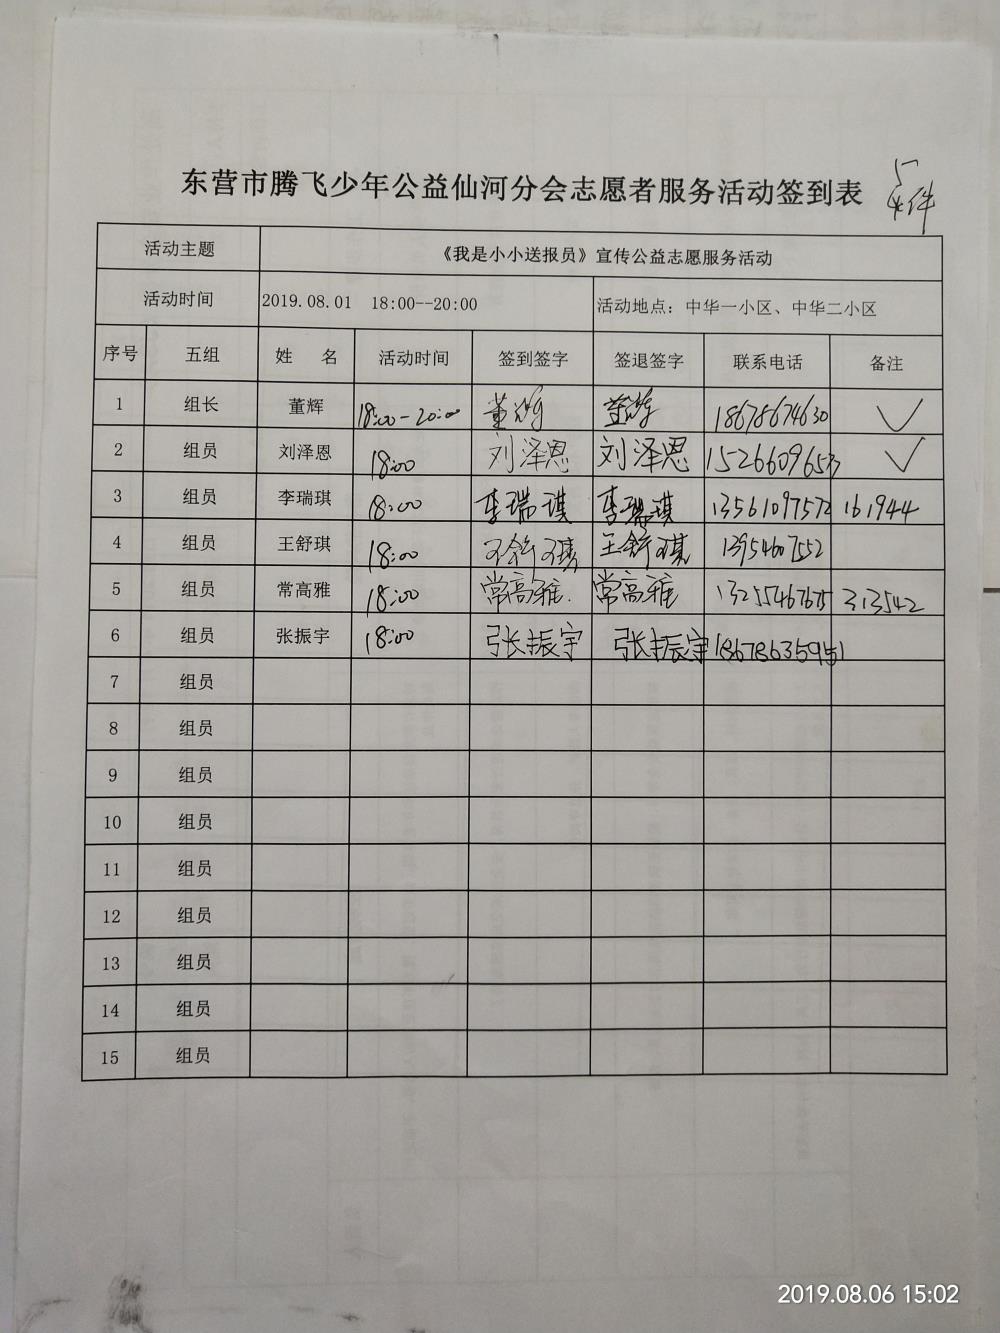 东营市腾飞少年公益仙河分会志愿者服务活动签到表
5件
活动主题 《我是小小送报员》宣传公益志愿服务活动
活动时间 2019.08.01 18:00--20:00 活动地点：中华一小区、中华二小区
序号 五组 姓 名 活动时间 签到签字 签退签字 联系电话 备注
1 组长 董辉 18:00-20:00 董辉 董辉 18678674630 ✓
2 组员 刘泽恩 18:00 刘泽恩 刘泽恩 15266096533 ✓
3 组员 李瑞琪 18:00 李瑞琪 李瑞琪 13561097572 161944
4 组员 王舒琪 18:00 王舒琪 王舒琪 13954607552
5 组员 常高雅 18:00 常高雅. 常高雅 13255467675 313542
6 组员 张振宇 18:00 张振宇 张振宇 18678635951
7 组员
8 组员
9 组员
10 组员
11 组员
12 组员
13 组员
14 组员
15 组员
2019.08.06 15:02